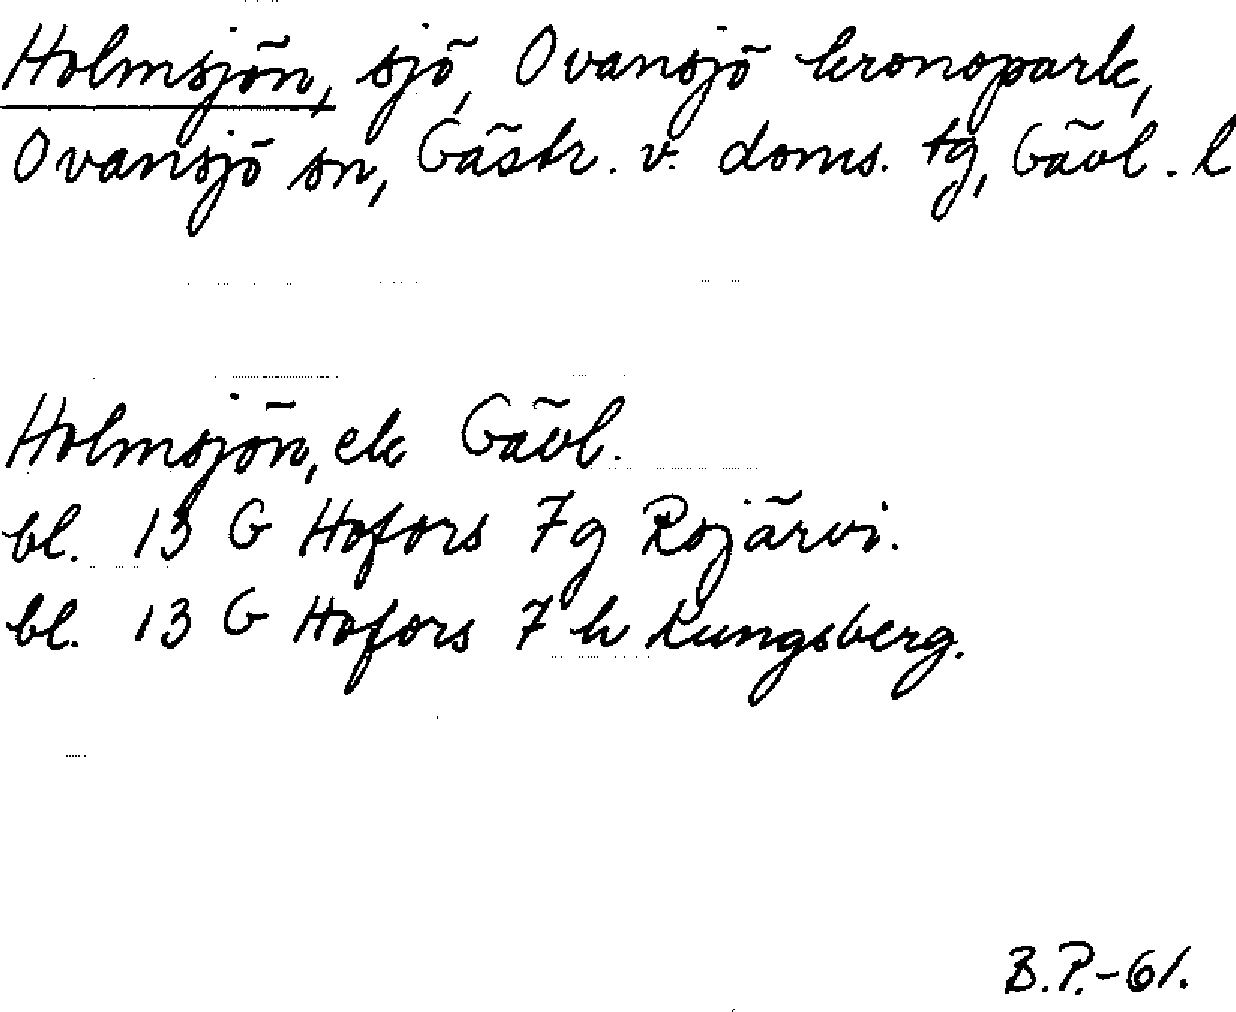 Holmsjön, sjö, Ovansjö kronopark,
Ovansjö sn, Gästr. v. doms. tg, Gävl. l
Holmsjön, ek Gävl.
bl. 13 G Hofors 7g Rojärvi.
bl. 13 G Hofors 7h Kungsberg.
B.P.-61.